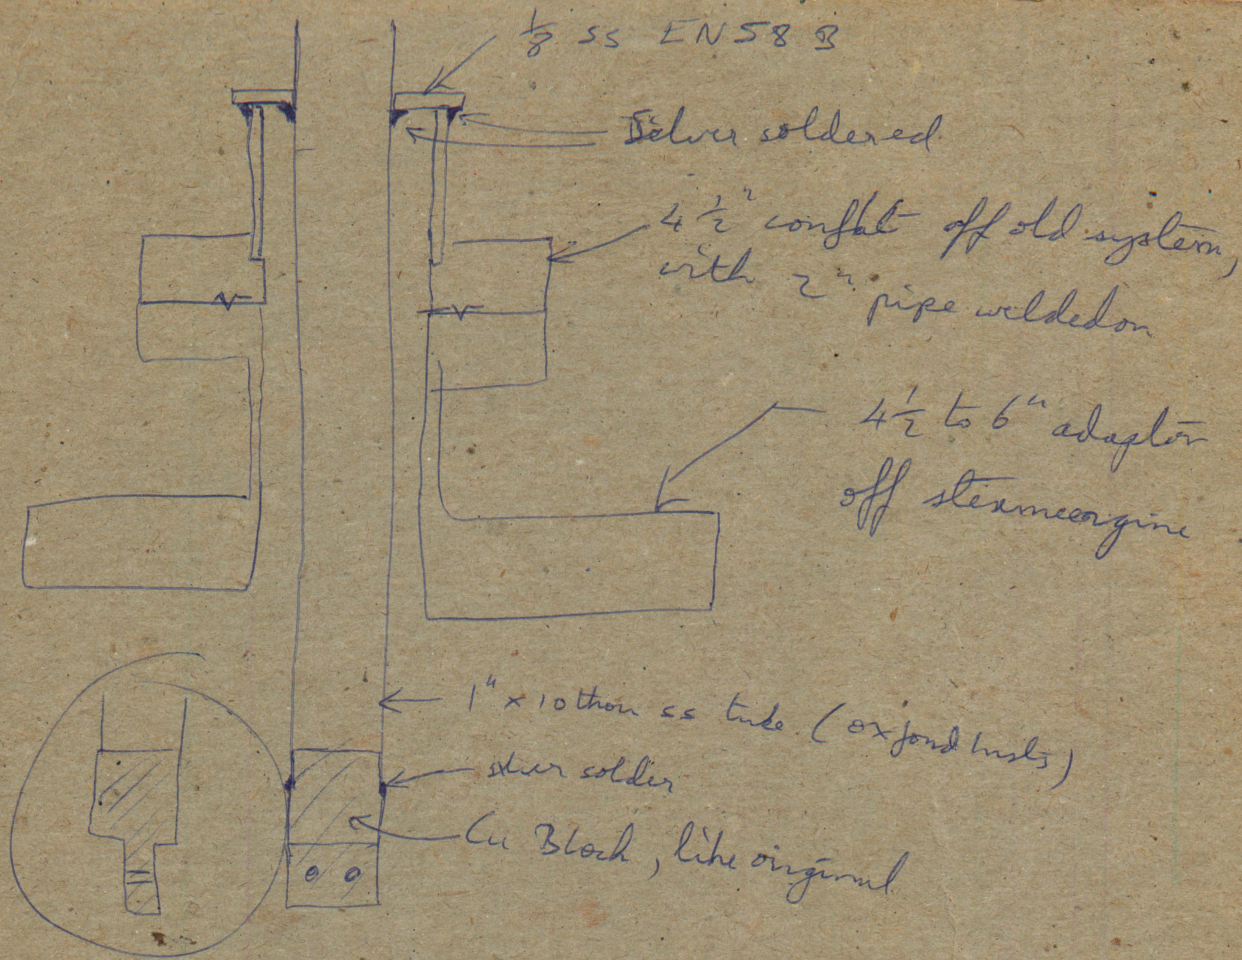 1/8 ss EN58 B
Silver soldered
4 1/2" conflat off old system,
with 2" pipe welded on
4 1/2 to 6" adaptor
off
1" x 10 thou ss tube (oxford insts)
silver solder
Cu Block, like original